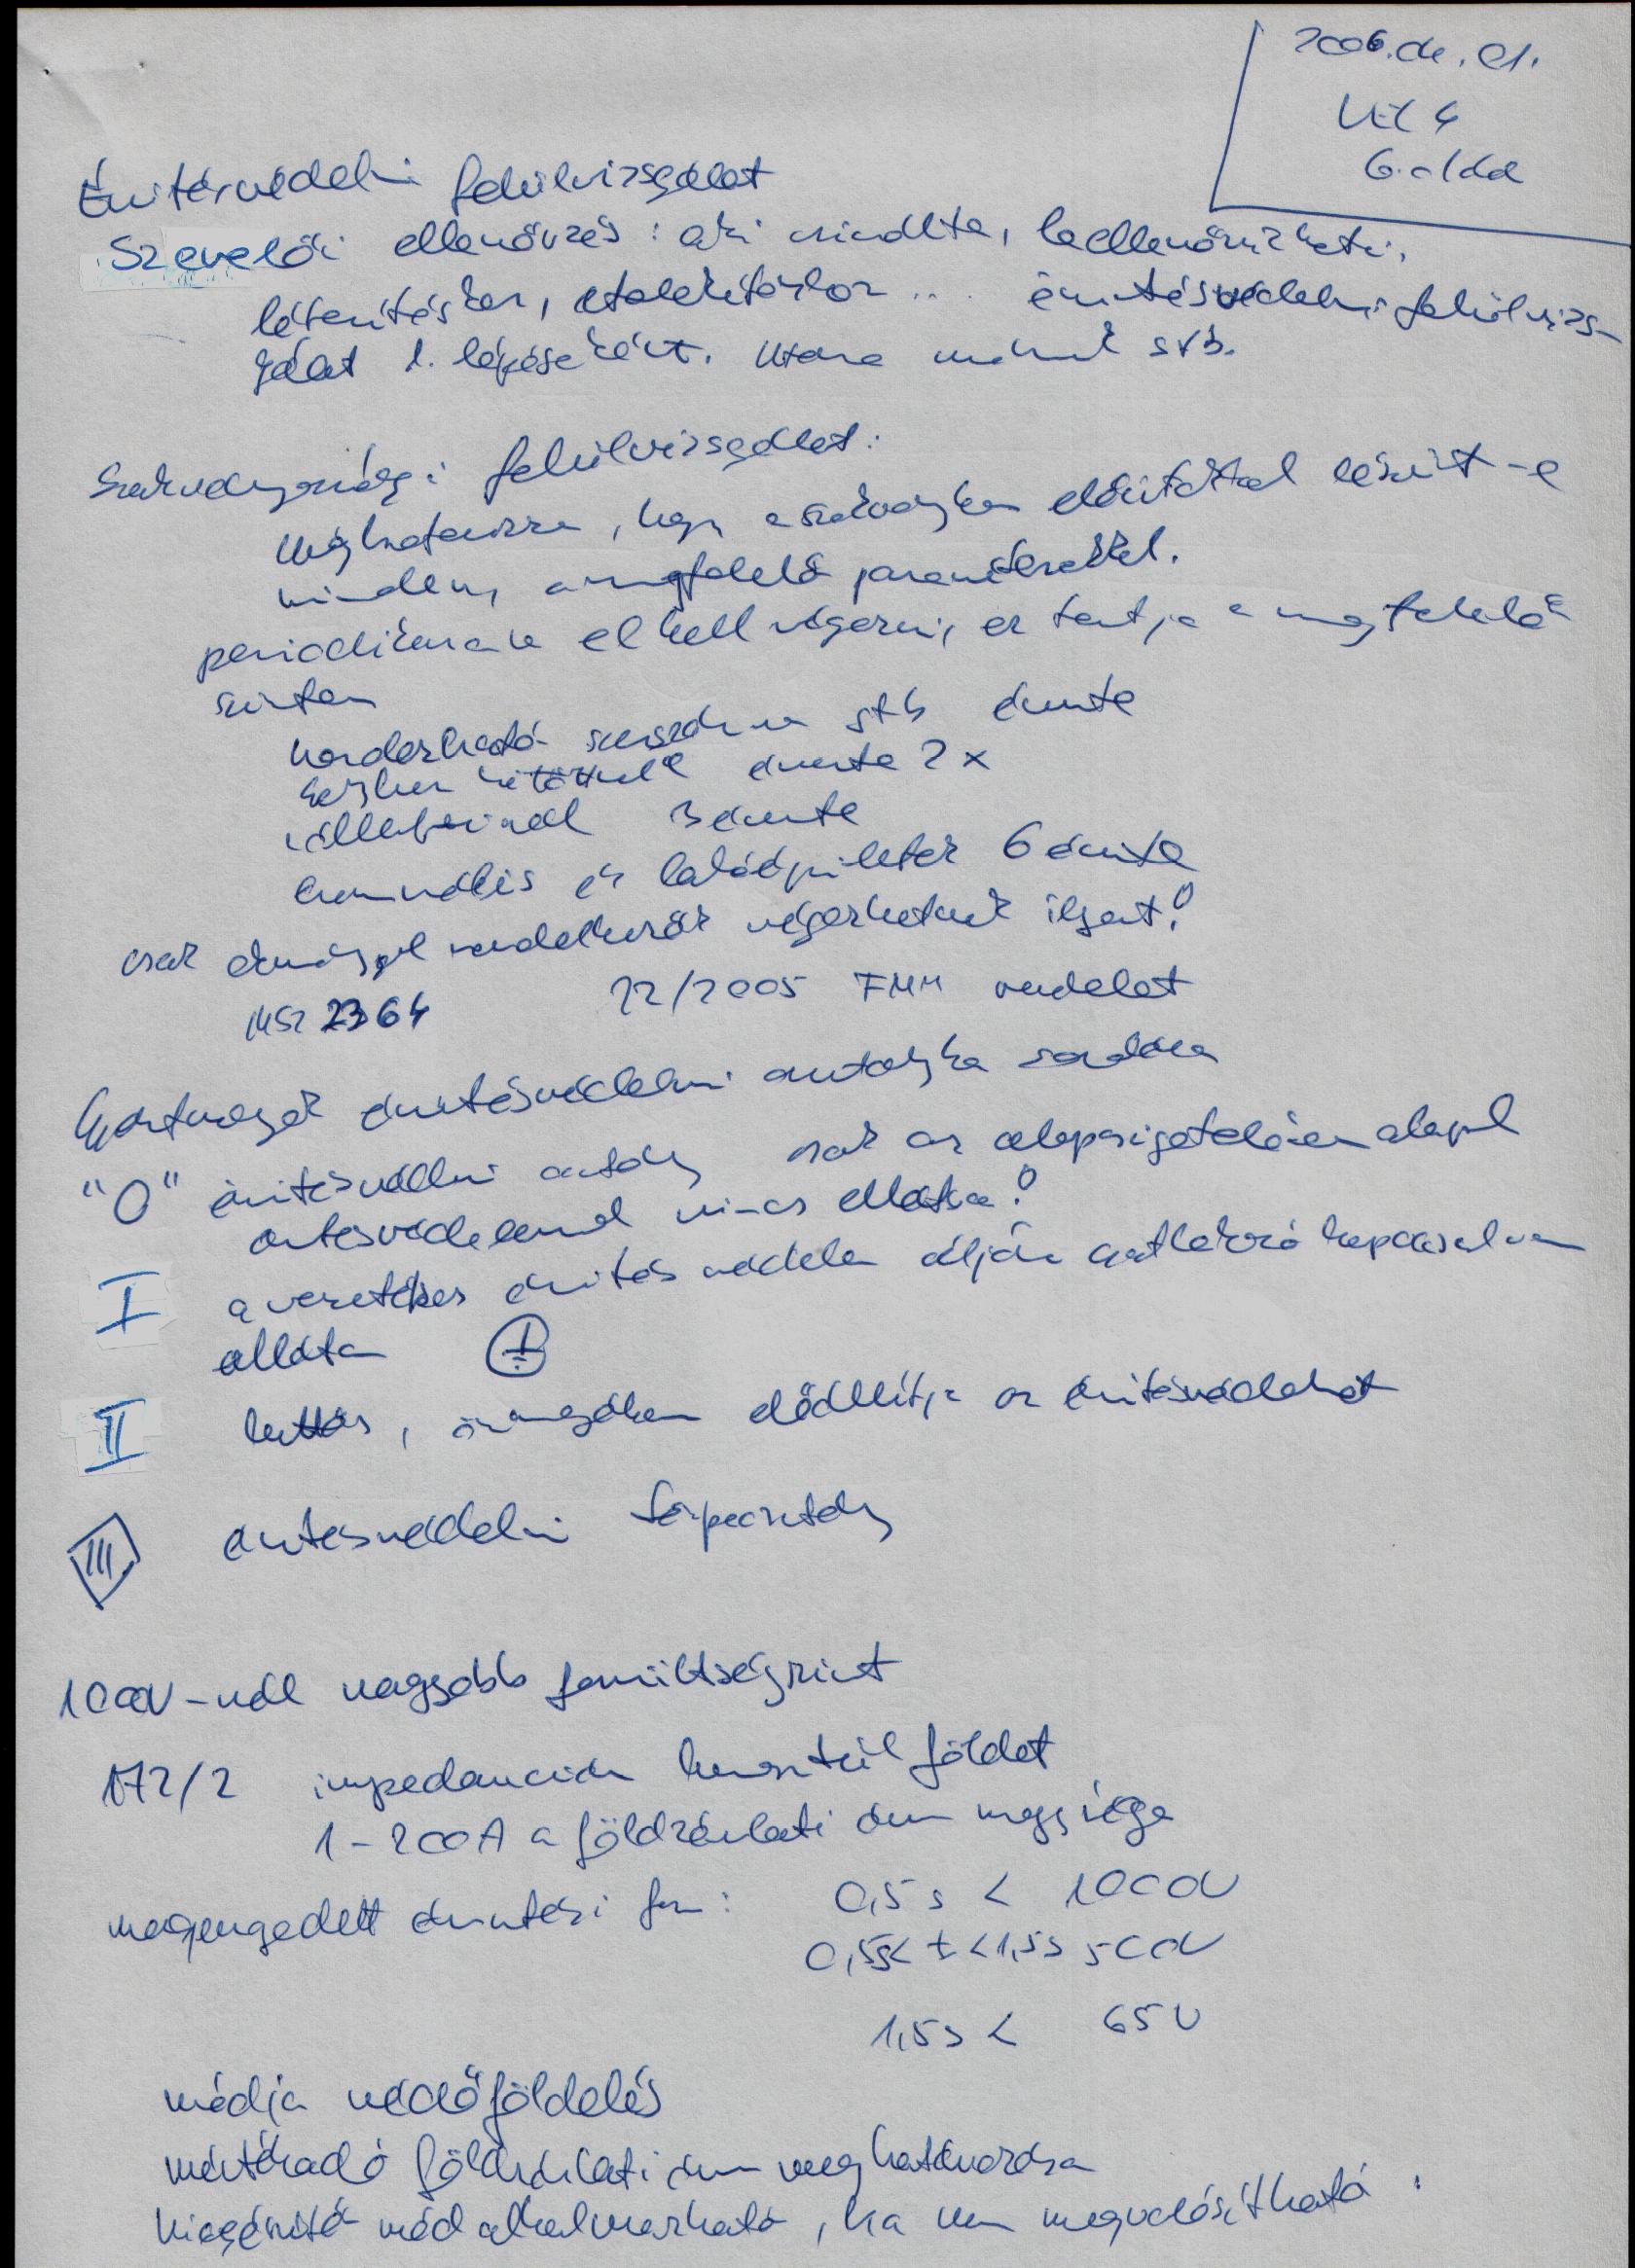 2006.
6. oldal
Érintésvédelmi felülvizsgálat
Szerelői ellenőrzés: aki csinálta, leellenőrizheti,
létesítéskor, átalakításkor ... érintésvédelmi felülvizs-
gálat 1. lépéseként. Utána mérünk stb.
Szabványossági felülvizsgálat:
Meghatározza, hogy a szabványban előírtakkal készült-e
minden, a megfelelő paraméterekkel.
periodikusan el kell végezni, ez tartja a megfelelő
szinten
hordozható stb évente
kézben évente 2x
3 évente
kommunális és lakóépületek 6 évente
csak végezhetnek ilyent!
MSZ 2364 22/2005 FMM rendelet
Gyártmányok érintésvédelmi osztályba sorolása
"0" érintésvédelmi osztály csak az alapszigetelésen alapul
érintésvédelemmel nincs ellátva!
I a vezetékes érintésvédelem céljára csatlakozó kapoccsal van
ellátva
II kettős, önmagában előállítja az érintésvédelmet
III érintésvédelmi törpeosztály
1000V-nál nagyobb feszültségszint
172/2 impedancián keresztül földelt
1-200A a földzárlati áram nagysága
megengedett érintési fesz: 0,5s < 1000V
0,5s< t <1,5s 500V
1,5s < 65V
módja védőföldelés
mértékadó földzárlati áram meghatározása
kiegészítő mód alkalmazható, ha nem megvalósítható: